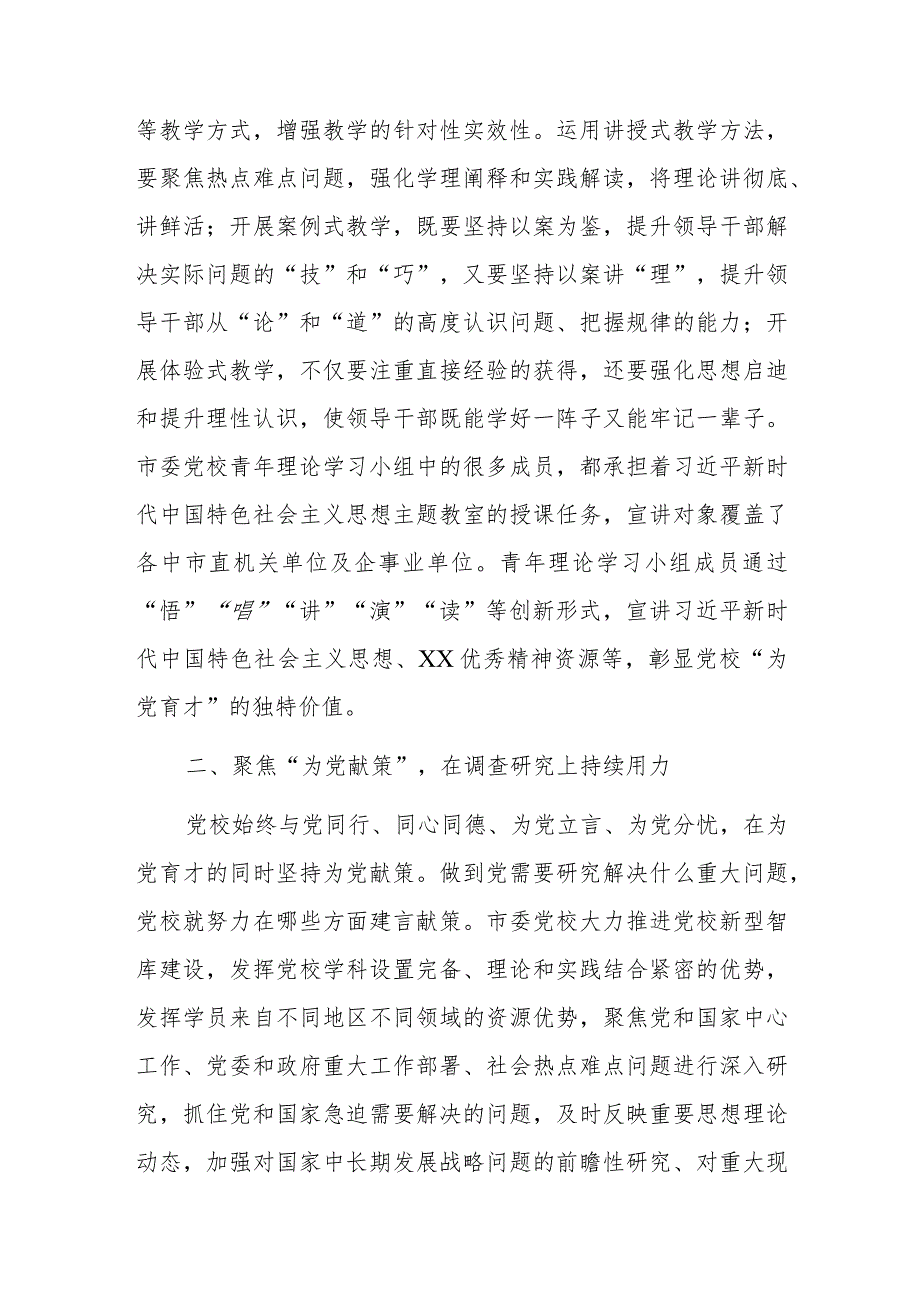 等教学方式，增强教学的针对性实效性。运用讲授式教学方法，
要聚焦热点难点问题，强化学理阐释和实践解读，将理论讲彻底、
讲鲜活；开展案例式教学，既要坚持以案为鉴，提升领导干部解
决实际问题的“技”和“巧”，又要坚持以案讲“理”，提升领
导干部从“论”和“道”的高度认识问题、把握规律的能力；开
展体验式教学，不仅要注重直接经验的获得，还要强化思想启迪
和提升理性认识，使领导干部既能学好一阵子又能牢记一辈子。
市委党校青年理论学习小组中的很多成员，都承担着习近平新时
代中国特色社会主义思想主题教室的授课任务，宣讲对象覆盖了
各中市直机关单位及企事业单位。青年理论学习小组成员通过
“悟”“唱”“讲”“演”“读”等创新形式，宣讲习近平新时
代中国特色社会主义思想、XX优秀精神资源等，彰显党校“为
党育才”的独特价值。
二、聚焦“为党献策”，在调查研究上持续用力
党校始终与党同行、同心同德、为党立言、为党分忧，在为
党育才的同时坚持为党献策。做到党需要研究解决什么重大问题，
党校就努力在哪些方面建言献策。市委党校大力推进党校新型智
库建设，发挥党校学科设置完备、理论和实践结合紧密的优势，
发挥学员来自不同地区不同领域的资源优势，聚焦党和国家中心
工作、党委和政府重大工作部署、社会热点难点问题进行深入研
究，抓住党和国家急迫需要解决的问题，及时反映重要思想理论
动态，加强对国家中长期发展战略问题的前瞻性研究、对重大现